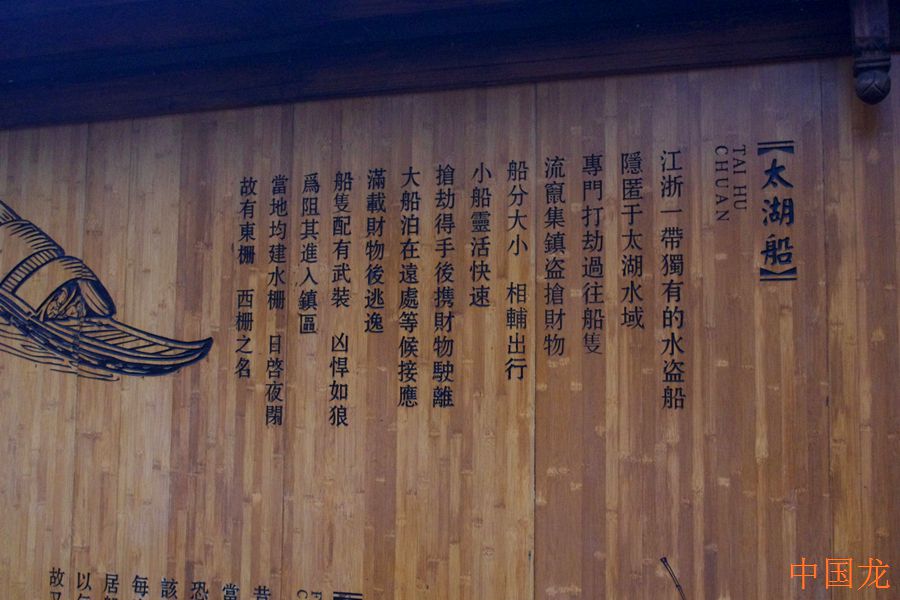 【太湖船】
TAI HU
CHUAN
江浙一帶獨有的水盗船
隱匿于太湖水域
專門打劫過往船隻
流竄集鎮盗搶財物
船分大小 相輔出行
小船靈活快速
搶劫得手後携財物駛離
大船泊在遠處等候接應
滿載財物後逃逸
船隻配有武裝 凶悍如狼
爲阻其進入鎮區
當地均建水栅 日啓夜閉
故有東栅 西栅之名
昔
當
恐
該
每
居
以
故又
中国龙